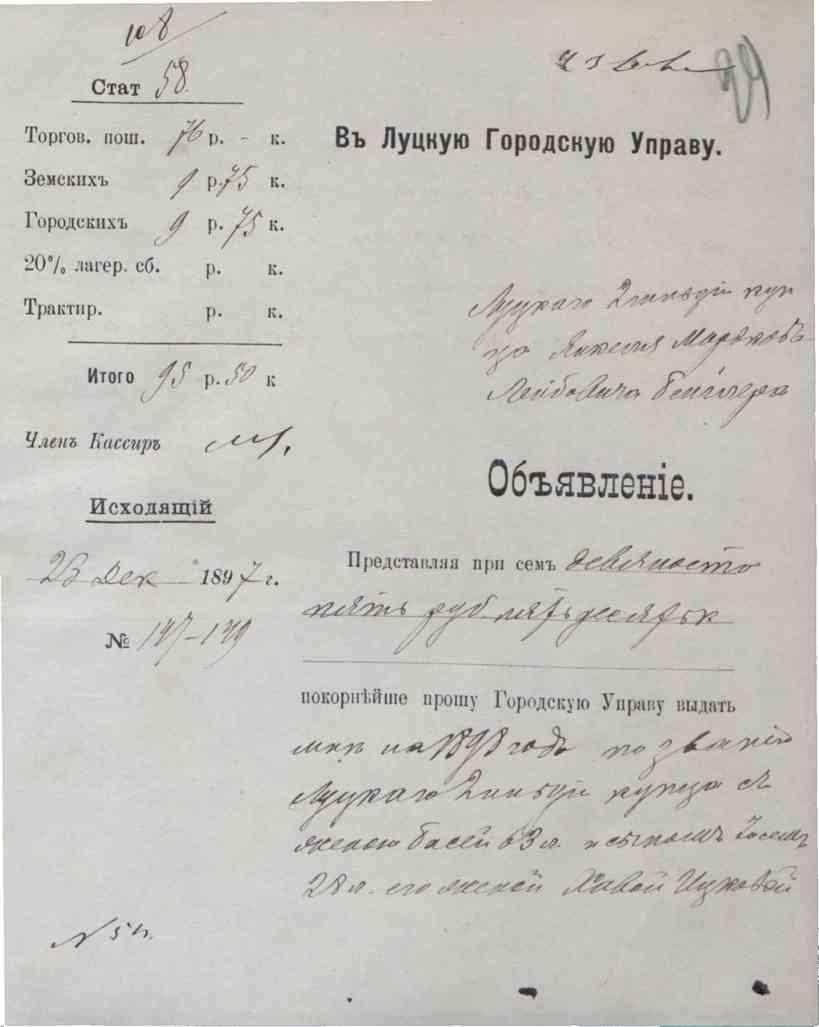 108
Стат 58.
Торгов. пош. 76 р. - к.
Земскихъ 9 р. 75 к.
Городскихъ 9 р. 75 к.
20% лагер. сб. р. к.
Трактир. р. к.
Итого 95 р. 50 к
Членъ Кассиръ
Исходящій
23 Дек 1897 г.
№ 147-149
Въ Луцкую Городскую Управу.
Луцкаго 2 гильдіи куп
ца Янкеля Мардков
Лейбовича
Объявленіе.
Представляя при семъ девяносто
пять руб пятьдесят к
покорнѣйше прошу Городскую Управу выдать
мнѣ на 1898 годъ по званію
Луцкаго 2 гильдіи купца съ
женою Басей 63 л. и сыномъ
28 л. его женой Хавой Ицковой